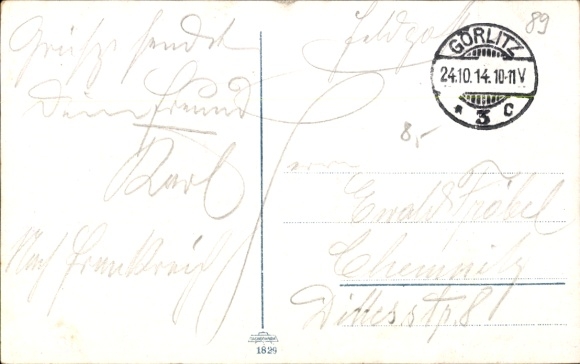 Grüße sendet
Dein Freund
Karl
Nach Frankreich
Feldpost
89
GÖRLITZ
24.10.14.10-11V
* 3 C
8,-
Herrn
Ewald Fröbel
Chemnitz
Dittesstr. 8
1829